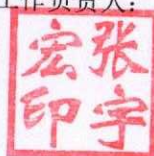 工作负责人：
张宇
宏印